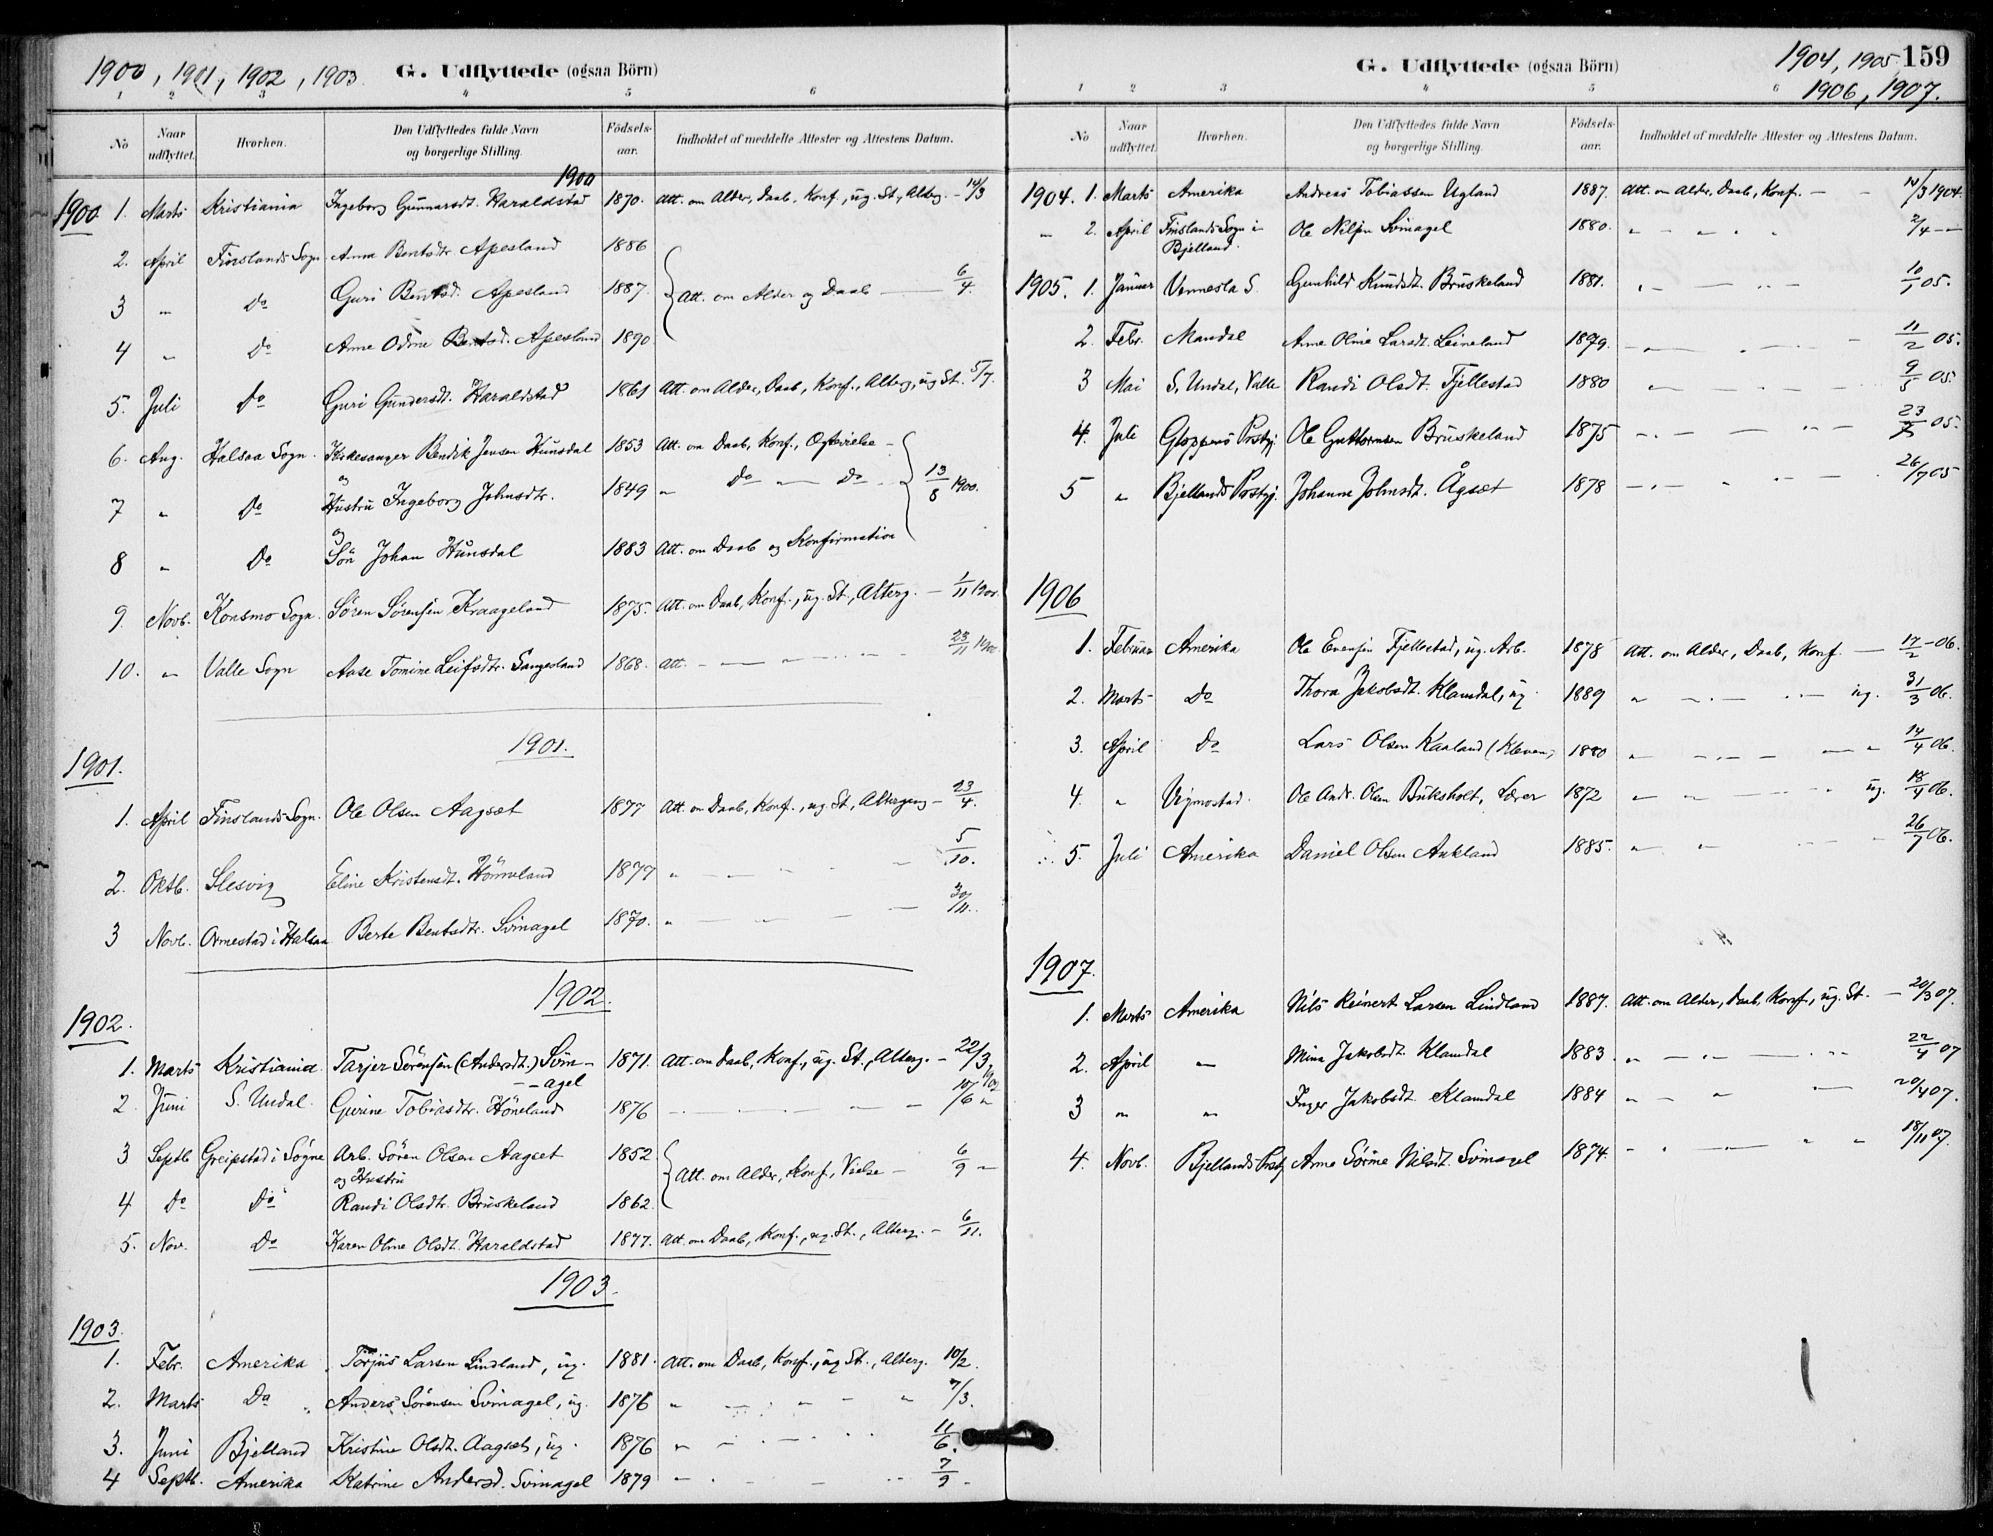 1900, 1901, 1902, 1903. G. Udflyttede (ogsaa Börn)
1 2 3 4 5 6
No Naar udflyttet. Hvorhen. Den Udflyttedes fulde Navn og borgerlige Stilling. Födsels-aar. Indholdet af meddelte Attester og Attestens Datum.
1900
1900 1. Marts Kristiania Ingeborg Gunnarsdt. Haraldstad 1870. Att. om Alder, Daab, Konf., ug. St., Alterg. - 14/3
2. April Finslands Sogn Anna Bentsdtr Apesland 1886
3 " Do Guri Bentsd. Apesland 1887. Att. om Alder og Daab 6/4.
4 " Do Anne Odine Bentsd. Apesland 1890
5. Juli Do Guri Gundersdt. Haraldstad 1861 Att. om Alder, Daab, Konf., Alterg., ug St. 5/7.
6. Aug. Halsaa Sogn. Kirkesanger Bendik Jensen Hunsdal 1853 Att. om Daab, Konf., Ogtevielse -
og
7 " Do Hustru Ingeborg Johnsdtr. 1849 " Do " Do 13/8 1900.
og
8 " Do Sön Johan Hunsdal 1883 Att. om Daab og Konfirmation
9. Novb. Konsmo Sogn. Sören Sörensen Kraageland 1875. Att. om Daab, Konf., ug. St., Alterg. - 1/11 1900.
10. " Valle Sogn Aase Tomine Leifsdtr. Sangesland 1868. Att. - 23/11 1900.
1901.
1901.
1. April Finslands Sogn. Ole Olsen Aagset 1877 Att. om Daab, Konf., ug. St., Altergang - 23/4.
2. Oktb. Slesvig Eline Kristensdt. Hönneland 1877 " 5/10.
3 Novb. Ormestad i Halsaa Berte Bentsdtr. Svinagel 1870. " 30/11.
1902.
1902.
1. Marts Kristiania Tarjer Sörensen (Andersdt.) Svin- 1871. Att. om Daab, Konf., ug. St., Alterg. - 22/3 1902
- agel
2 Juni S. Undal. Gurine Tobiasdtr. Höneland 1876 10/6 "
3 Septb Greipstad i Sögne Arb. Sören Olsen Aagset 1852 Att. om Alder, Konf., Vielse - 6/9 -
og Hustru
4 Do Do Randi Olsdtr. Bruskeland 1862
5. Nov. Do Karen Oline Olsdt. Haraldstad 1877. Att. om Daab, Konf., ug. St., Alterg. - 6/11.
1903.
1903.
1. Febr. Amerika Torjus Larsen Lindland, ug. 1881. Att. om Daab, Konf., ug St., Alterg. 10/2.
2. Marts Do Anders Sörensen Svinagel, ug. 1876 " 7/3.
3. Juni Bjelland Kristine Olsdt. Aagset, ug. 1876 " 11/6.
4 Septb. Amerika Katrine Andersd. Svinagel 1879 " 7/9 -
G. Udflyttede (ogsaa Börn) 1904, 1905 159
1906, 1907.
1 2 3 4 5 6
No Naar udflyttet. Hvorhen. Den Udflyttedes fulde Navn og borgerlige Stilling. Födsels-aar. Indholdet af meddelte Attester og Attestens Datum.
1904. 1. Marts Amerika Andreas Tobiassen Ugland 1887. Att. om Alder, Daab, Konf. - - /3 1904.
" 2. April Finslands Sogn i Bjelland. Ole Nilsen Svinagel 1880. " 2/4 --
1905. 1. Januar Vennesla S. Gunhild Knudsdt. Bruskeland 1881. " 10/1 05.
2. Febr. Mandal Anne Oline Larsdt. Leineland 1879. 11/2 05.
3 Mai S. Undal, Valle Randi Olsdt. Fjellestad 1880 " 9/5 05.
4. Juli Gloppens Prstgj. Ole Guttormsen Bruskeland 1875 23/7 05.
5 " Bjellands Prstgj. Johanne Johnsdt. Ågset 1878 26/7 05
1906
1. Februar Amerika Ole Evensen Fjellestad, ug. Arb. 1878 Att. om Alder, Daab, Konf. - 17/2 -06.
2. Marts Do Thora Jakobsdt. Klamdal, ug 1889 " ug. 31/3 06.
3. April Do Lars Olsen Kaaland (Kleven) 1880 " 14/4 06.
4. " Vigmostad. Ole Andr. Olsen Buksholt, Lærer 1872 " ug. 18/4 06.
5. Juli Amerika Daniel Olsen Aukland 1885. " 26/7 06.
1907.
1. Marts Amerika Nils Reinert Larsen Lindland 1887. Att. om Alder, Daab, Konf., ug. St. - 20/3 07.
2. April " Mina Jakobsdt. Klamdal 1883. " 22/4 07
3 " " Inger Jakobsdt. Klamdal 1884 " 20/4 07.
4. Novb. Bjellands Prstgj Anne Sörine Nilsdt. Svinagel 1874. 18/11 07.